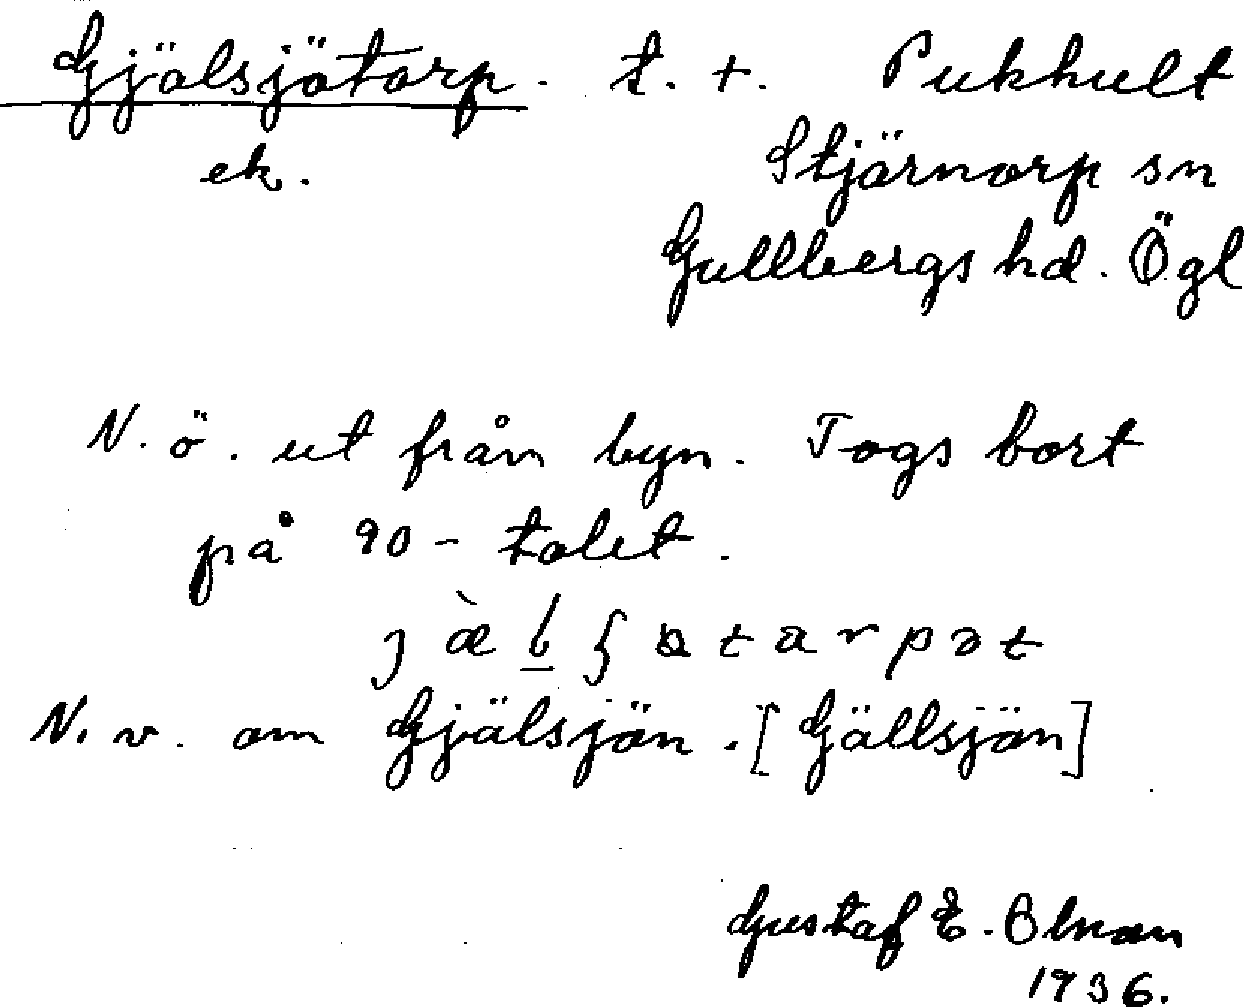 Gjälsjötorp. t. +. Pukhult
ek. Stjärnorp sn
Gullbergs hd. Ögl
N. ö. ut från byn. Togs bort
på 90-talet.
N. v. om Gjälsjön. [Gällsjön]
Gustaf E.
1936.